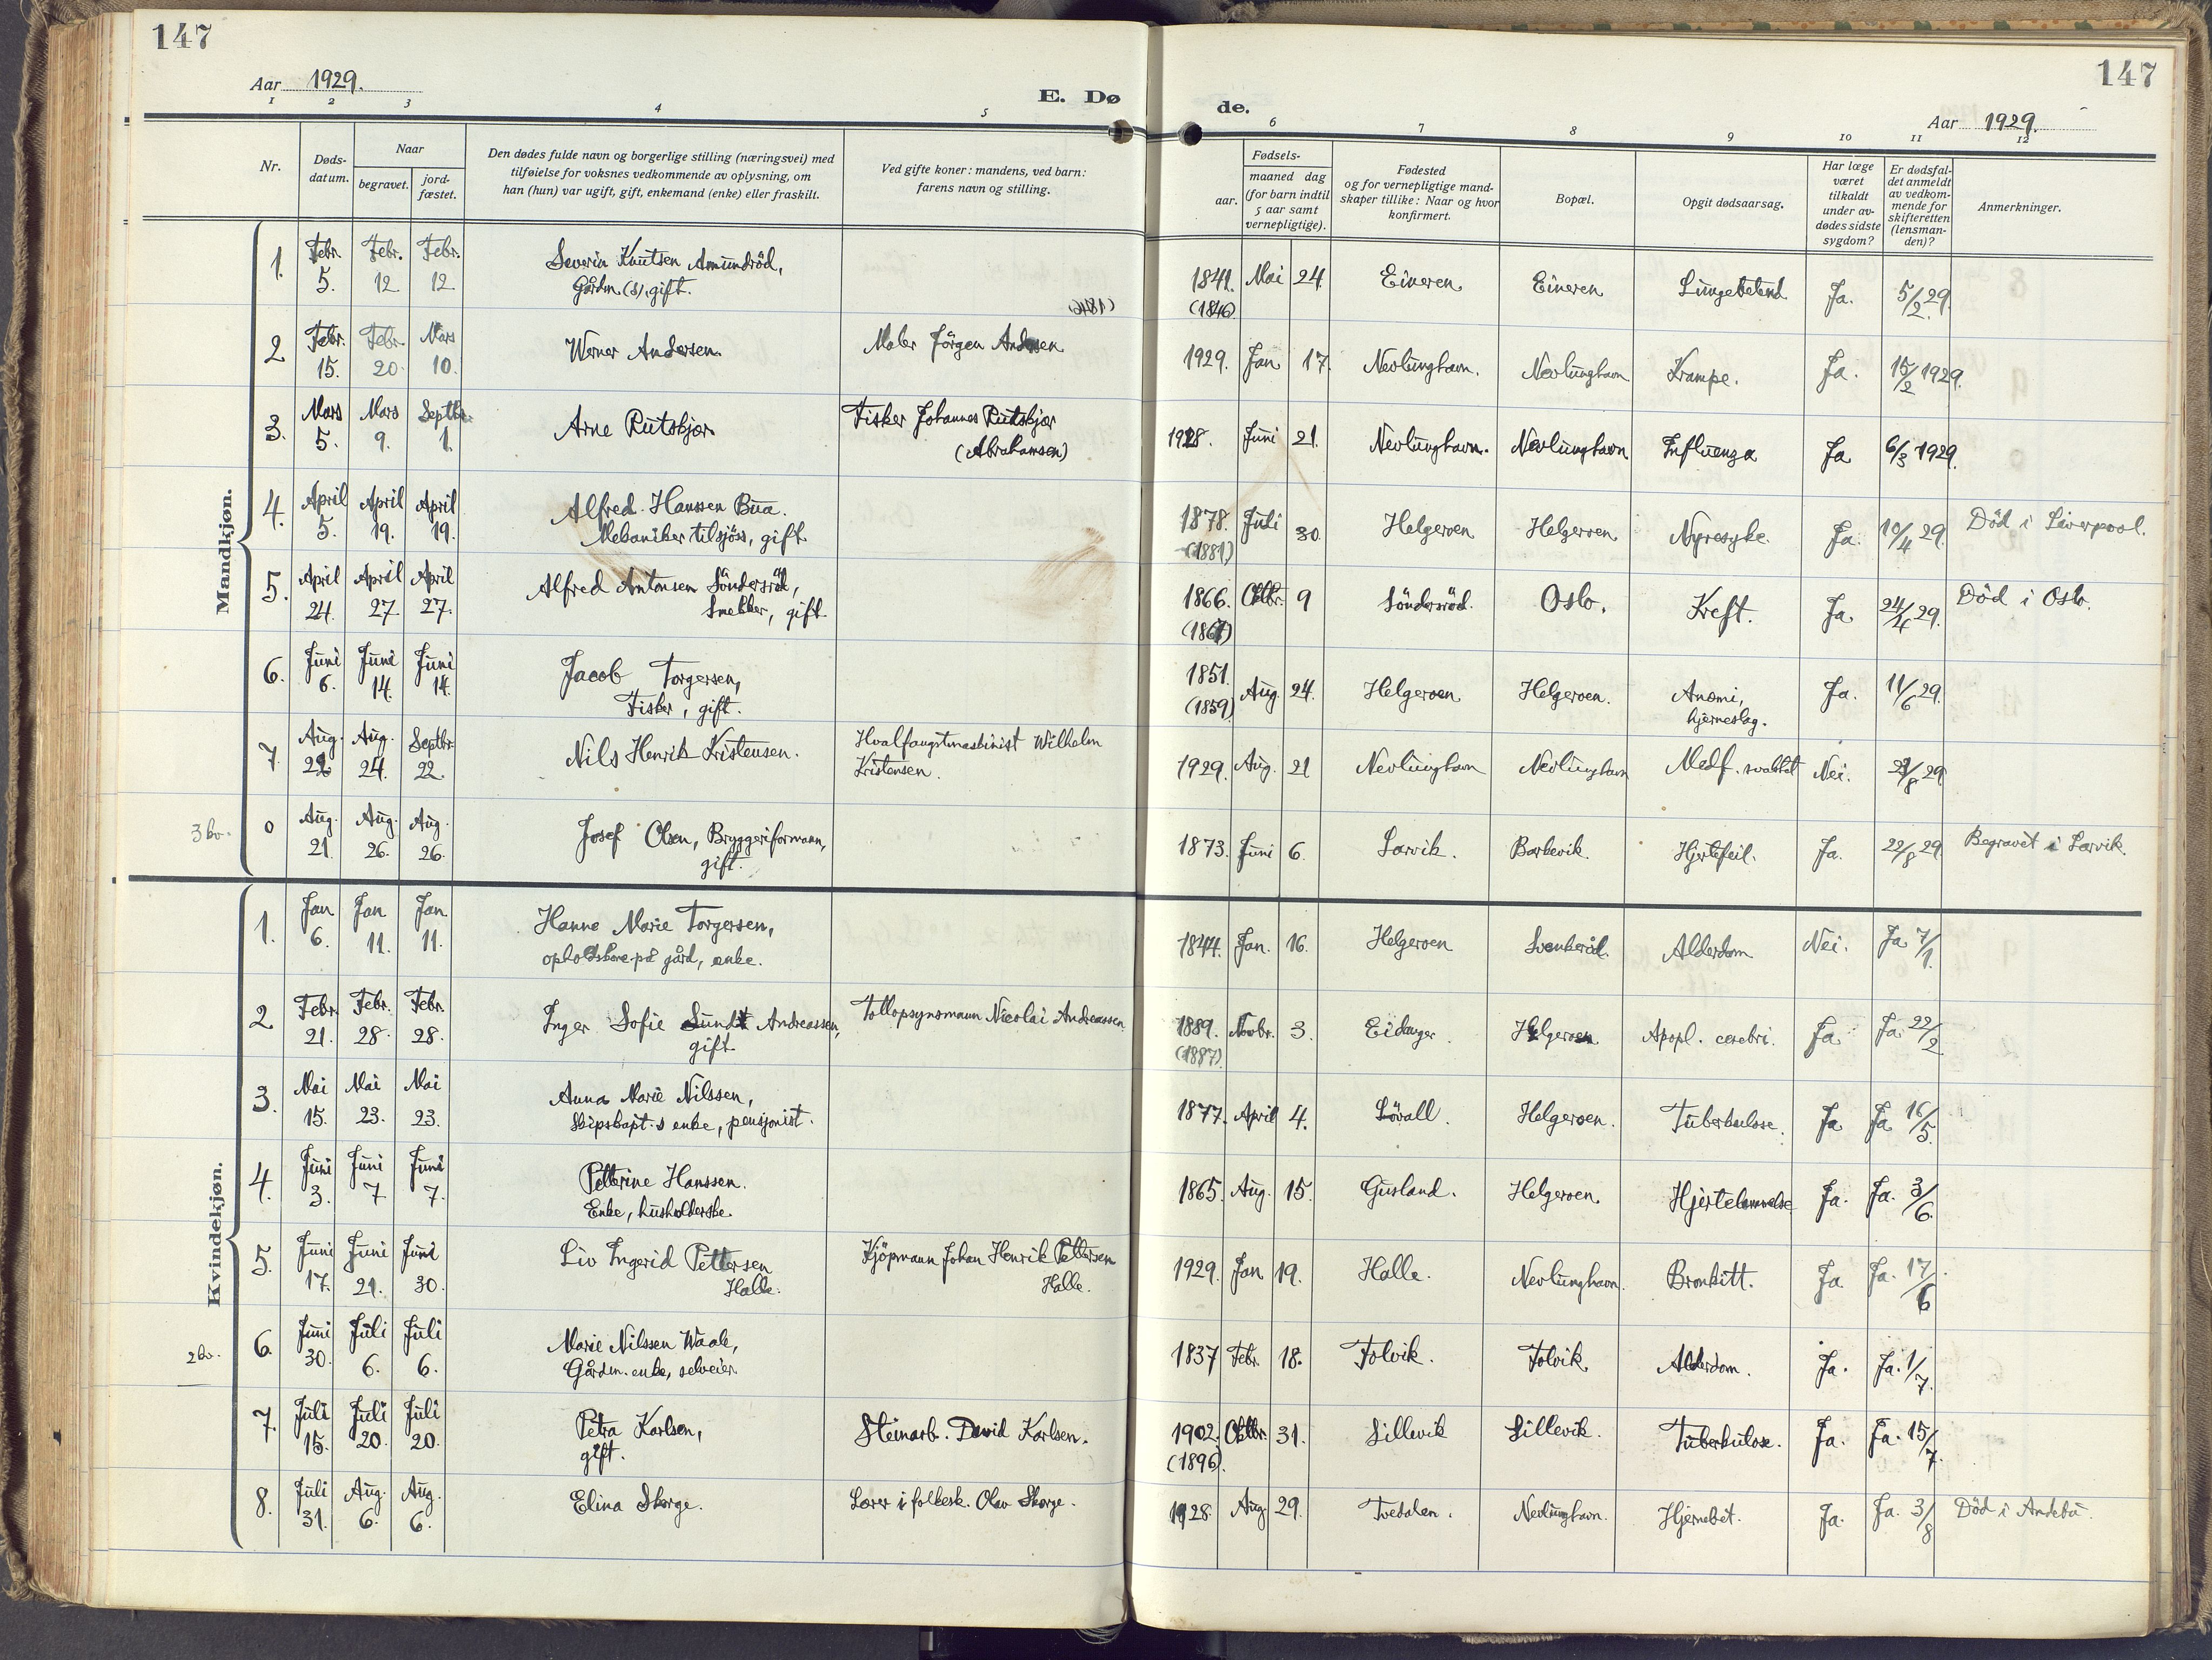 147
147
Aar 1929.
E. Dø de.
Aar 1929.
1 2 3 4 5 6 7 8 9 10 11 12
Nr.
Døds-
datum.
Naar
begravet.
jord-
fæstet.
Den dødes fulde navn og borgerlige stilling (næringsvei) med
tilføielse for voksnes vedkommende av oplysning, om
han (hun) var ugift, gift, enkemand (enke) eller fraskilt.
Ved gifte koner: mandens, ved barn:
farens navn og stilling.
Fødsels-
aar.
maaned dag
(for barn indtil
5 aar samt
vernepligtige).
Fødested
og for vernepligtige mand-
skaper tillike: Naar og hvor
konfirmert.
Bopæl.
Opgit dødsaarsag.
Har læge
været
tilkaldt
under av-
dødes sidste
sygdom?
Er dødsfal-
det anmeldt
av vedkom-
mende for
skifteretten
(lensman-
den)?
Anmerkninger.
Mandkjøn.
1. Febr. 5. Febr. 12. Febr. 12. Severin Knutsen Amundröd, 1841. Mai 24. Eineren Eineren Lungebetend Ja. 5/2 29.
Gårdm. (s), gift. (1846)
2 Febr. 15. Febr. 20. Mars 10. Werner Andersen. Maler Jörgen Andersen 1929. Jan 17. Nevlunghavn. Nevlunghavn Krampe. Ja. 15/2 1929.
3. Mars 5. Mars 9. Septbr. 1. Arne Rutskjær Fisker Johannes Rutskjær 1928. Juni 21. Nevlunghavn. Nevlunghavn Influenza Ja 6/3 1929.
(Abrahamsen)
4. April 5. April 19. April 19. Alfred Hanssen Bua. 1878. Juli 30. Helgeroen Helgeroen Nyresyke. Ja. 10/4 29. Död i Liverpool.
Mekaniker tilsjöss, gift. (1881)
5. April 24. April 27. April 27. Alfred Antonsen Söndersröd, 1866. Oktbr. 9 Söndersröd. Oslo. Kreft. Ja. 24/4 29. Död i Oslo.
Snekker, gift. (1867)
6. Juni 6. Juni 14. Juni 14. Jacob Torgersen, 1851. Aug. 24. Helgeroen Helgeroen. Anæmi, Ja. 11/6 29.
Fisker, gift. (1859) hjerneslag.
7. Aug. 22 Aug. 24. Septbr. 22. Nils Henrik Kristensen. Hvalfangstmaskinist Wilhelm 1929. Aug. 21 Nevlunghavn Nevlunghavn Medf. svakhet Nei. /8 29
Kristensen.
3 bv. 0 Aug. 21. Aug. 26. Aug. 26. Josef Olsen, Bryggeriformann, 1873. Juni 6. Larvik. Barkevik. Hjertefeil. Ja. 22/8 29. Begravet i Larvik.
gift.
Kvindekjøn.
1. Jan 6. Jan 11. Jan 11. Hanne Marie Torgersen, 1844. Jan. 16. Helgeroen Svenkeröd. Alderdom Nei. Ja 7/1.
opholdskone på gård, enke.
2 Febr. 21. Febr. 28. Febr. 28. Inger Sofie Lund Andreassen, Tollopsynsmann Nicolai Andreassen 1889. Novbr. 3. Eidanger. Helgeroen Apopl. cerebri. Ja Ja 22/2
gift. (1887)
3. Mai 15. Mai 23. Mai 23. Anna Marie Nilssen, 1877. April 4. Lövall. Helgeroen. Tuberkulose. Ja Ja 16/5.
Skipskapt.s enke, pensjonist.
4. Juni 3. Juni 7 Juni 7. Petterine Hanssen. 1865. Aug. 15. Gusland. Helgeroen. Hjertelammelse Ja. Ja. 3/6.
Enke, husholderske.
5. Juni 17. Juni 21. Juni 30. Liv Ingerid Pettersen Kjöpmann Johan Henrik Pettersen 1929. Jan 19. Halle. Nevlunghavn. Bronkitt. Ja. Ja. 17/6
Halle. Halle.
2 bv. 6. Juni 30. Juli 6. Juli 6. Marie Nilssen Waale, 1837 Febr. 18. Folvik. Folvik. Alderdom. Ja. Ja. 1/7.
Gårdm. enke, selveier.
7. Juli 15. Juli 20. Juli 20. Petra Karlsen, Steinarb. David Karlsen. 1902. Oktbr. 31. Lillevik Lillevik. Tuberkulose. Ja. Ja. 15/7.
gift. (1896).
8. Juli 31. Aug. 6. Aug. 6. Elina Skorge. Lærer i folkesk. Olav Skorge. 1928. Aug 29. Tvedalen. Nevlunghavn. Hjernebet. Ja. Ja. 3/8 Död i Andebu.